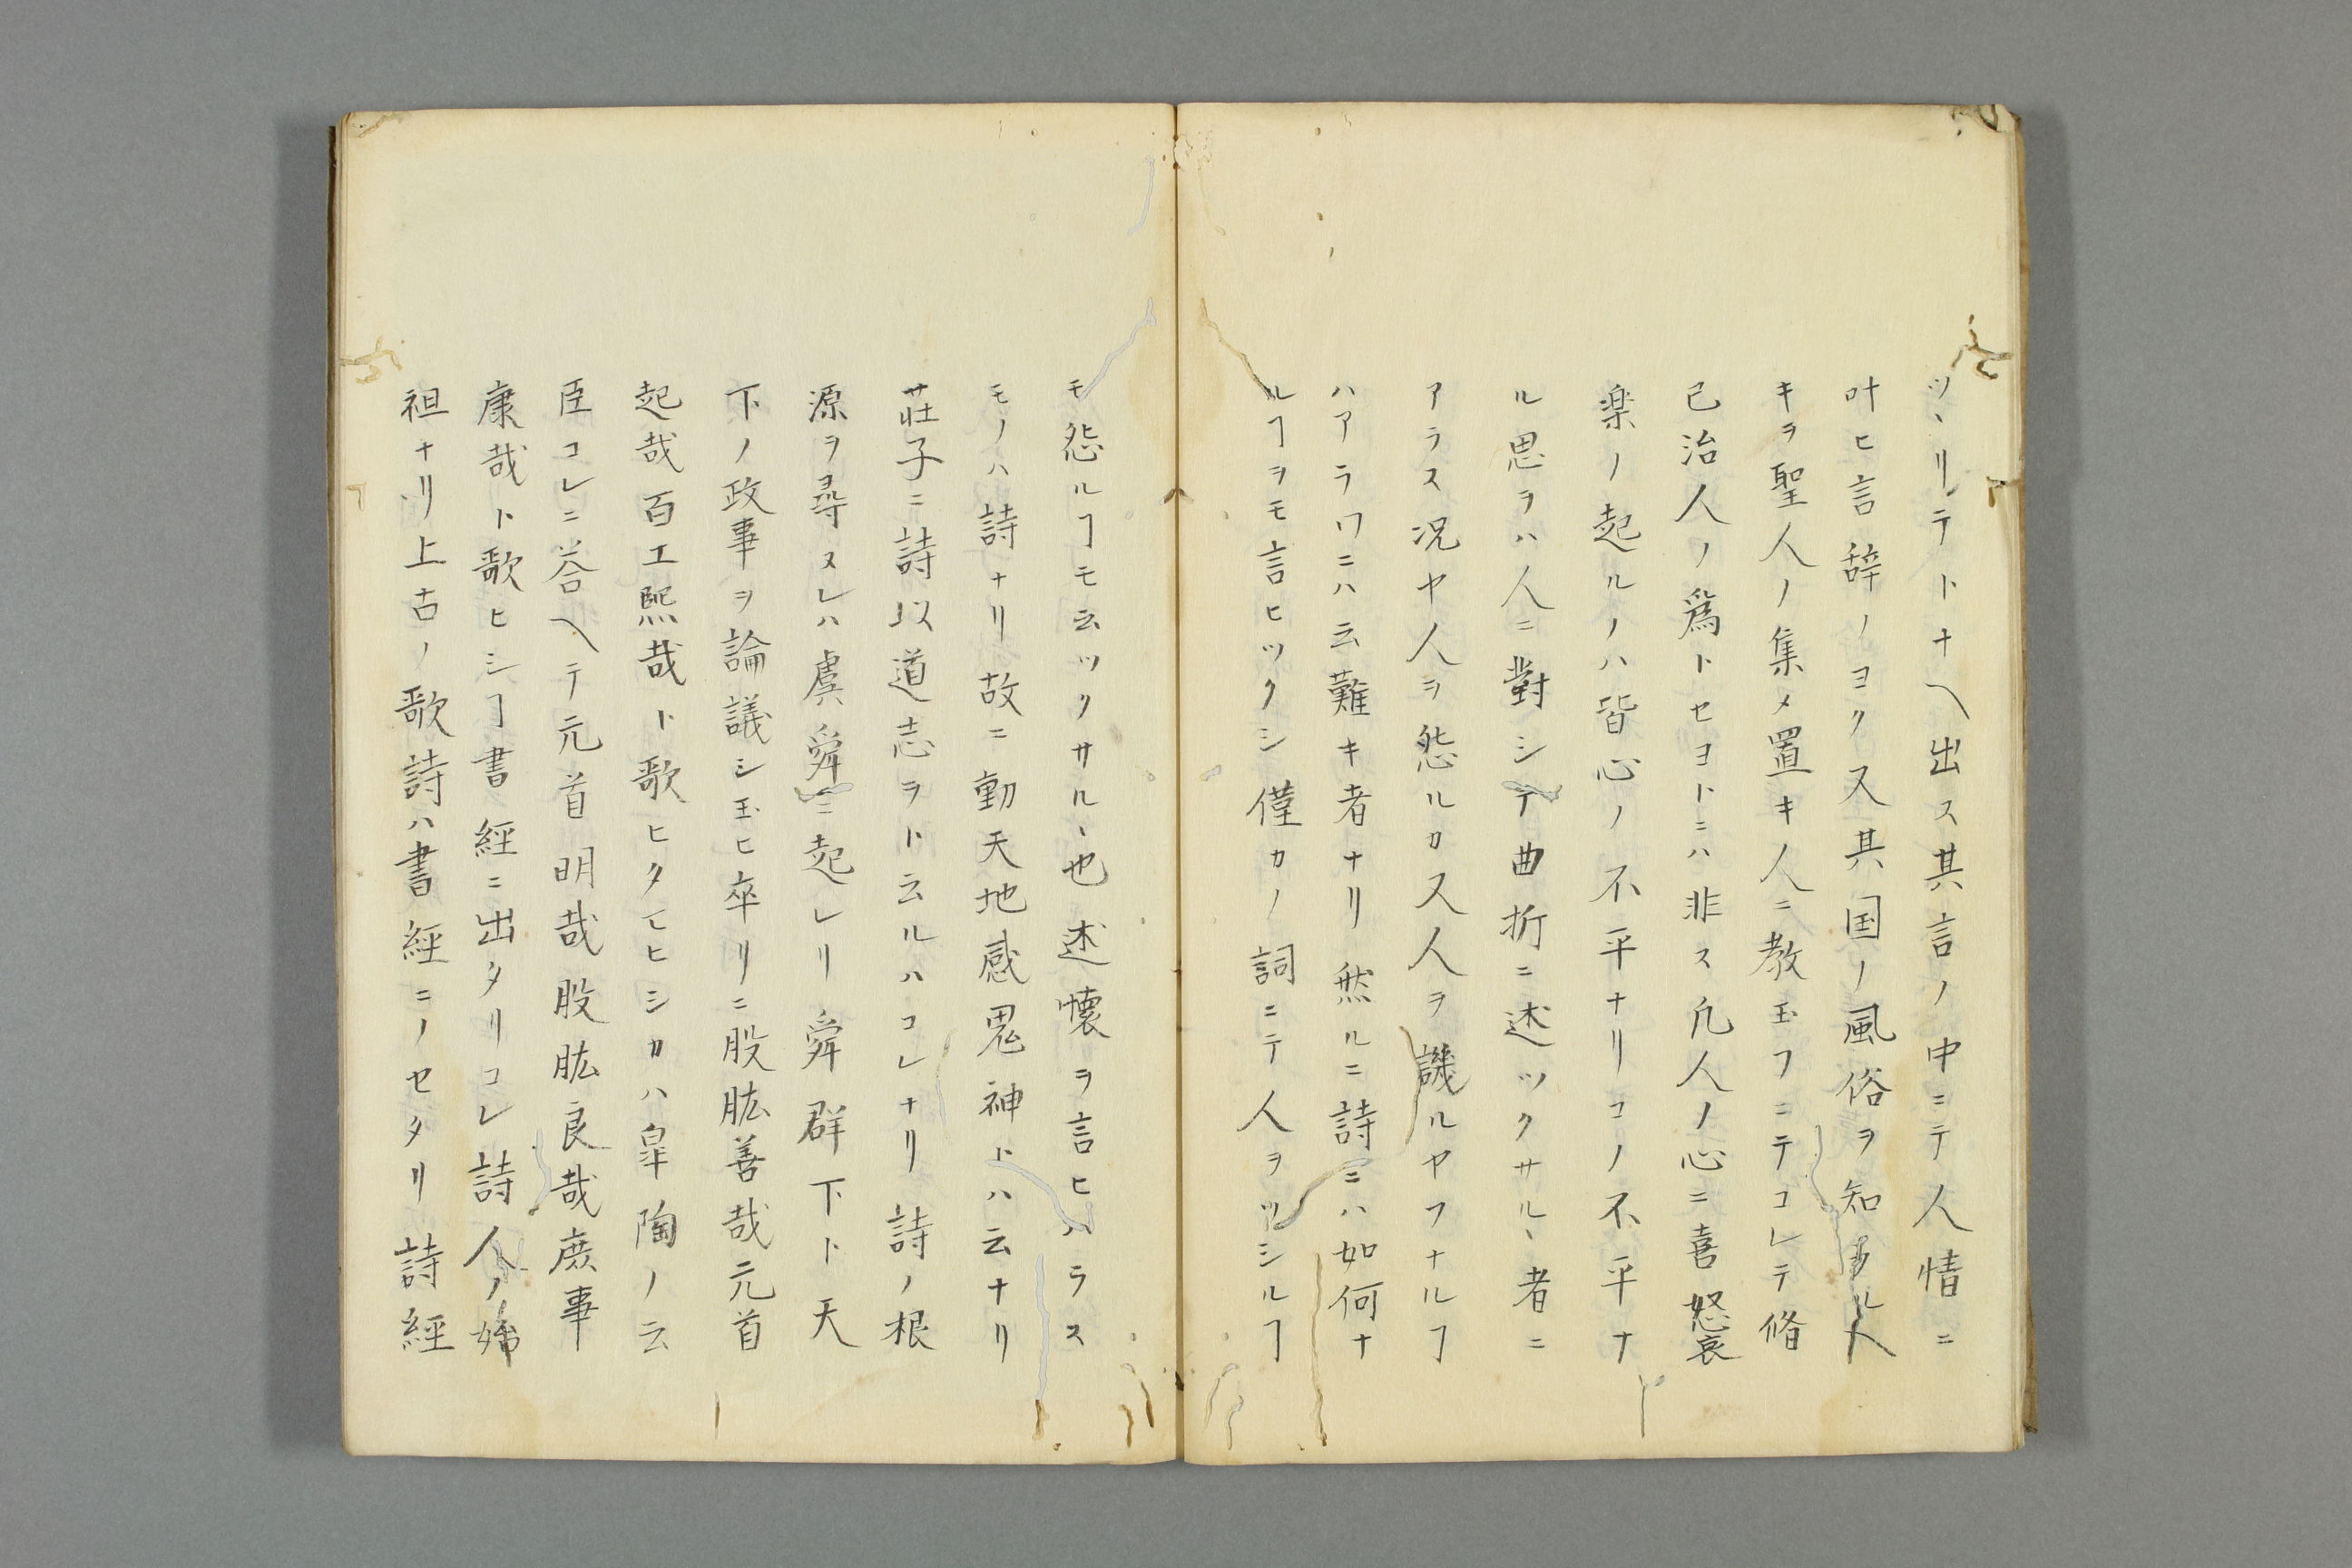 ツヽリテトナヘ出ス其言ノ中ニテ人情ニ
叶ヒ言辞ノヨク又其国ノ風俗ヲ知ル人
キヲ聖人ノ集メ置キ人ニ教玉フニテコレテ脩
己治人ノ為トセヨトニハ非ス凡人ノ心ニ喜怒哀
楽ノ起ルノハ皆心ノ不平ナリコノ不平ナ
ル思ヲハ人ニ對シテ曲折ニ述ツクサルヽ者ニ
アラス況ヤ人ヲ怨ルカ又人ヲ譏ルヤフナルヿ
ハアラワニハ云難キ者ナリ然ルニ詩ニハ如何ナ
ルヿヲモ言ヒツクシ僅カノ詞ニテ人ヲソシルヿ
モ怨ルヿモ云ツクサルヽ也述懐ヲ言ヒハラス
モノハ詩ナリ故ニ動天地感鬼神トハ云ナリ
莊子ニ詩以道志ヲト云ルハコレナリ詩ノ根
源ヲ尋ヌレハ虞舜ニ起レリ舜群下ト天
下ノ政事ヲ論議シ玉ヒ卒リニ股肱善哉元首
起哉百工熙哉ト歌ヒタモヒシカハ皐陶ノ云
臣コレニ荅ヘテ元首明哉股肱良哉庶事
康哉ト歌ヒシヿ書經ニ出タリコレ詩人ノ始
祖ナリ上古ノ歌詩ハ書經ニノセタリ詩經